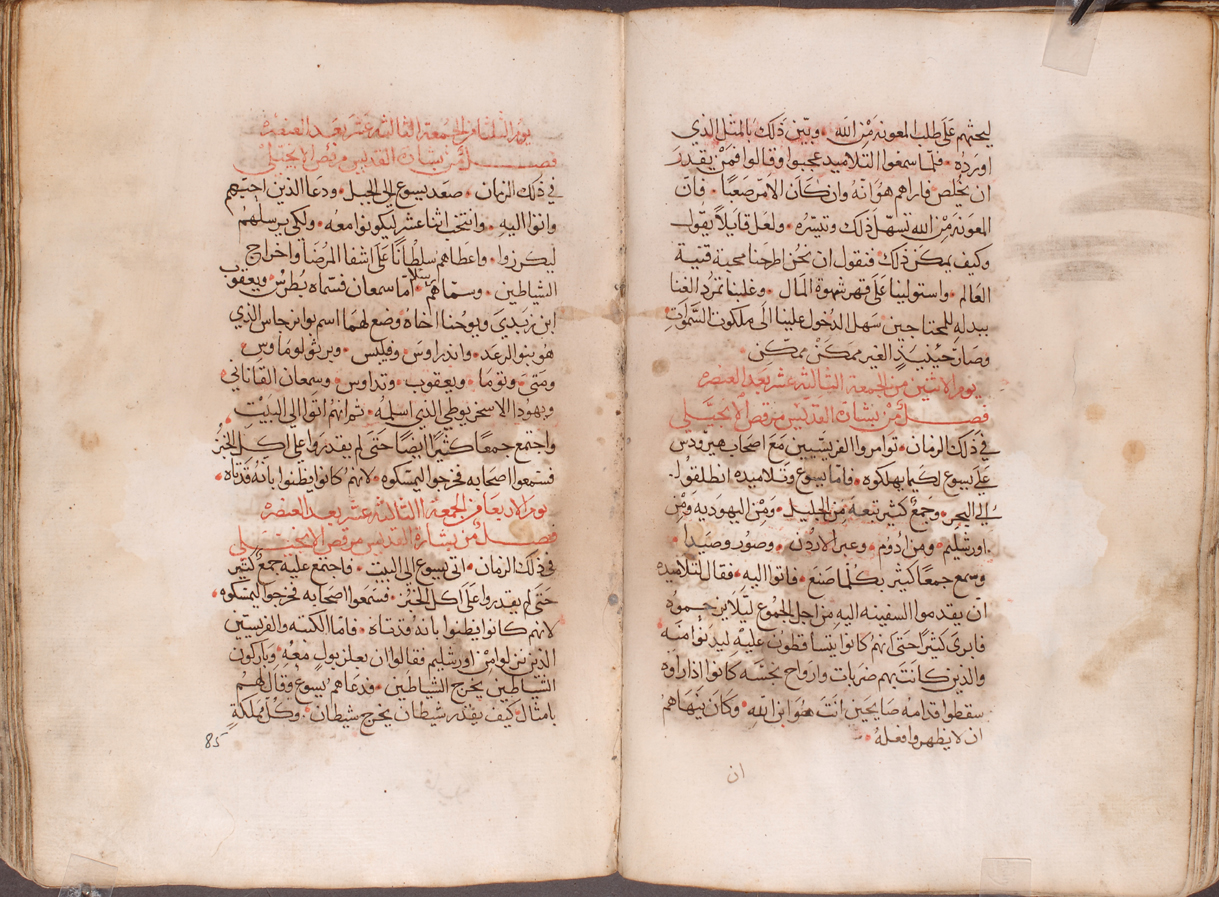 ليحثهم على طلب المعونه من الله • وبين ذلك بالمثل الذي
اورده • فلما سمعوا التلاميد عجبوا وقالوا فمن يقدر
ان يخلص فاراهم هو انه وان كان الامر صعبا • فان
المعونه من الله تسهل ذلك وتيسره • ولعل قايلا يقول
وكيف يمكن ذلك فنقول ان نحن اطرحنا محبة قنية
العالم • واستولينا على قهر شهوة المال • وغلبنا تمرد الغنا
ببدله للمحتاجين سهل الدخول علينا الى ملكوت السموات
وصار حينيذ الغير ممكن ممكن •
يوم الاثنين من الجمعة الثالثة عشر بعد العنصره
فصل من بشارة القديس مرقص الانجيلي
في ذلك الزمان • توامروا الفريسيين مع اصحاب هيرودس
على يسوع لكيما يهلكوه • فاما يسوع وتلاميده انطلقوا
الى البحر • وجمع كثير تبعه من الجليل • ومن اليهوديه ومن
اورشليم • ومن ادوم • وعبر الاردن • وصور وصيدا •
وسمع جمعا كثير بكلما صنع • فاتوا اليه • فقال لتلاميده
ان يقدموا السفينه اليه من اجل الجموع ليلا يزحموه
فابرى كثيرا حتى انهم كانوا يتساقطون عليه ليدنوا منه
والذين كانت بهم ضربات وارواح نجسه كانوا اذا راوه
سقطوا قدامه صايحين انت هو ابن الله • وكان ينهاهم
ان لا يظهروا فعله •
ان
يوم الثلثا من الجمعة الثالثه عشر بعد العنصره
فصل من بشارة القديس مرقص الانجيلي
في ذلك الزمان • صعد يسوع الى الجبل • ودعا الذين احبهم
واتوا اليه • وانتخب اثنا عشر ليكونوا معه • ولكي يرسلهم
ليكرزوا • واعطاهم سلطانا على اشفا المرضا واخراج
الشياطين • وسماهم رسلا اما سمعان فسماه بطرس ويعقوب
ابن زبدي ويوحنا اخاه وضع لهما اسم بوانرجاس الذي
هو بنو الرعد • واندراوس وفيلبس • وبرثولوماوس
ومتى وتوما • ويعقوب • وتداوس • وسمعان القاناني
ويهودا الاسخريوطي الذي اسلمه • ثم انهم اتوا الى البيت
واجتمع جمعا كثيرا ايضا حتى لم يقدروا على اكل الخبز
فسمعوا اصحابه فخرجوا ليمسكوه • لانهم كانوا يظنوا بانه قد تاه •
يوم الاربعا من الجمعة الثالثه عشر بعد العنصره
فصل من بشارة القديس مرقص الانجيلي
في ذلك الزمان • اتى يسوع الى البيت • واجتمع عليه جمع كثير
حتى لم يقدروا على اكل الخبز • فسمعوا اصحابه فخرجوا ليمسكوه •
لانهم كانوا يظنوا بانه قد تاه • فاما الكتبه والفريسيين
الذين نزلوا من اورشليم فقالوا ان بعلزبول معه • وباركون
الشياطين يخرج الشياطين • فدعاهم يسوع وقال لهم
بامثال كيف يقدر شيطان يخرج شيطان • وكل مملكة
85